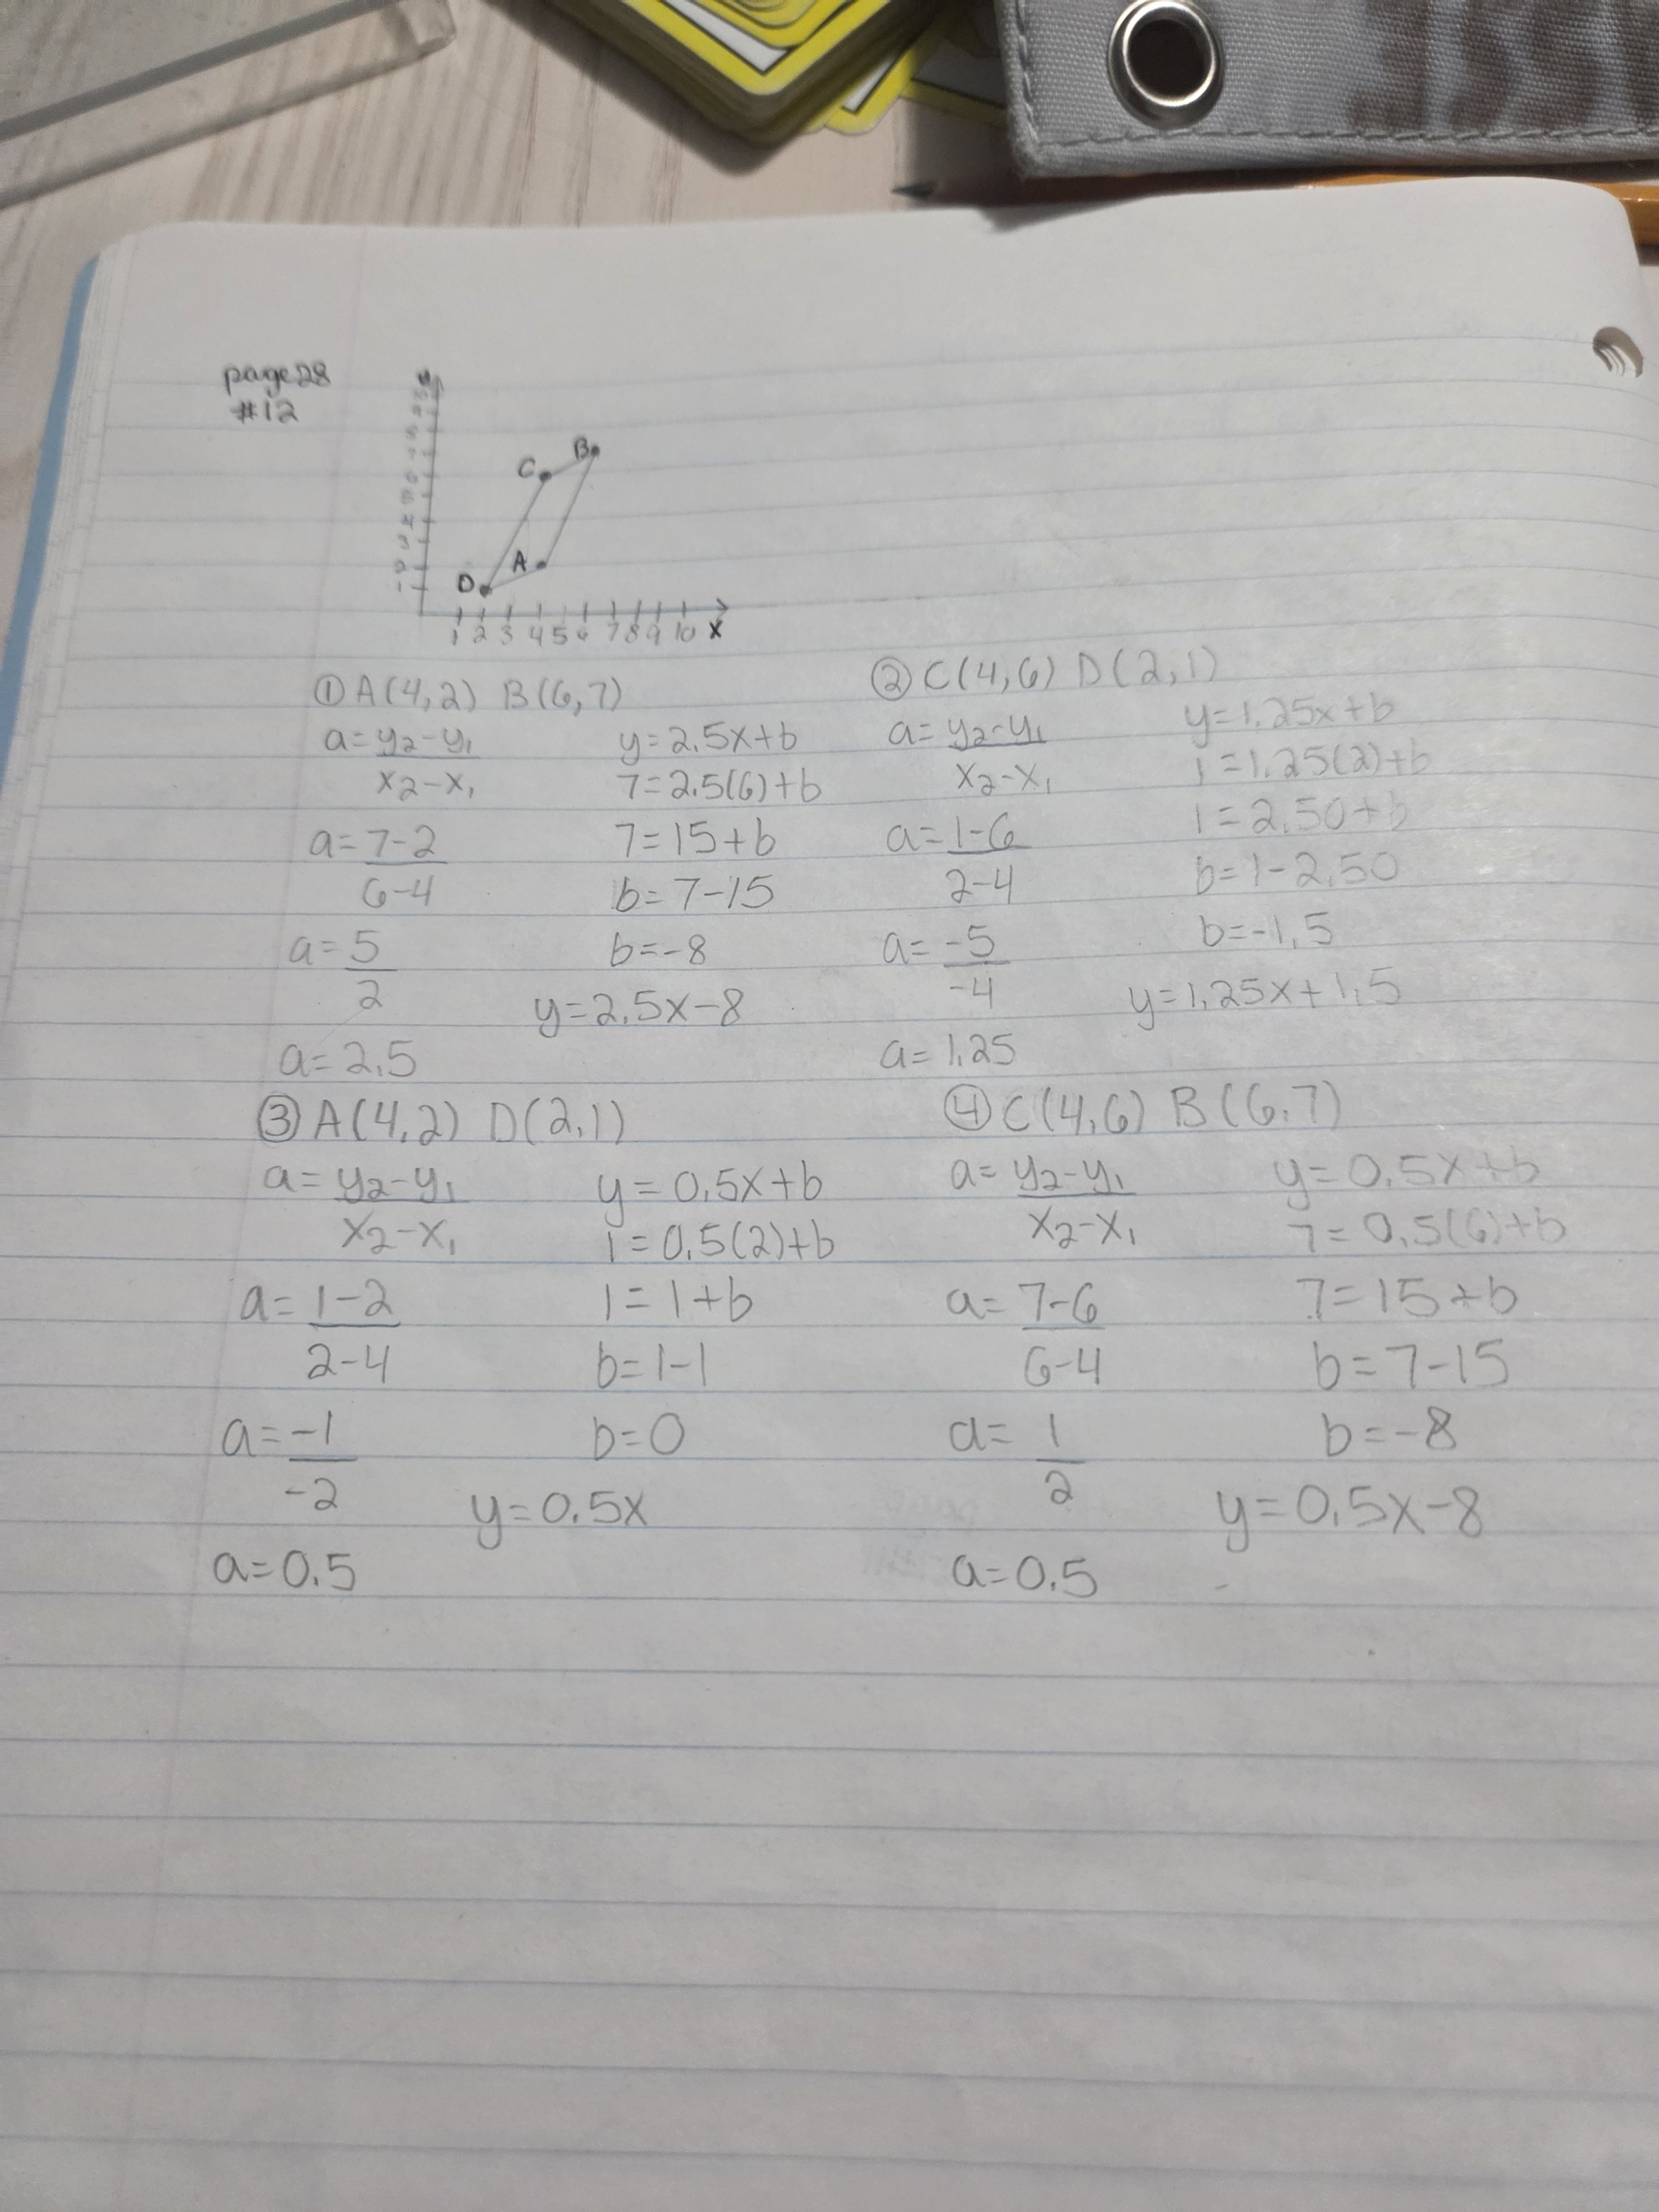 page 28
#12
B
C
A
D
1 2 3 4 5 6 7 8 9 10 X
① A(4,2) B(6,7)
a=y₂-y₁
x₂-x₁
a=7-2
6-4
a=5
2
a=2,5
y=2,5x+b
7=2,5(6)+b
7=15+b
b=7-15
b=-8
y=2,5x-8
② C(4,6) D(2,1)
a=y₂-y₁
x₂-x₁
a=1-6
2-4
a=-5
-4
a=1,25
y=1,25x+b
1=1,25(2)+b
1=2,50+b
b=1-2,50
b=-1,5
y=1,25x+1,5
③ A(4,2) D(2,1)
a=y₂-y₁
x₂-x₁
a=1-2
2-4
a=-1
-2
a=0,5
y=0,5x+b
1=0,5(2)+b
1=1+b
b=1-1
b=0
y=0,5x
④ C(4,6) B(6,7)
a=y₂-y₁
x₂-x₁
a=7-6
6-4
a=1
2
a=0,5
y=0,5x+b
7=0,5(6)+b
7=15+b
b=7-15
b=-8
y=0,5x-8